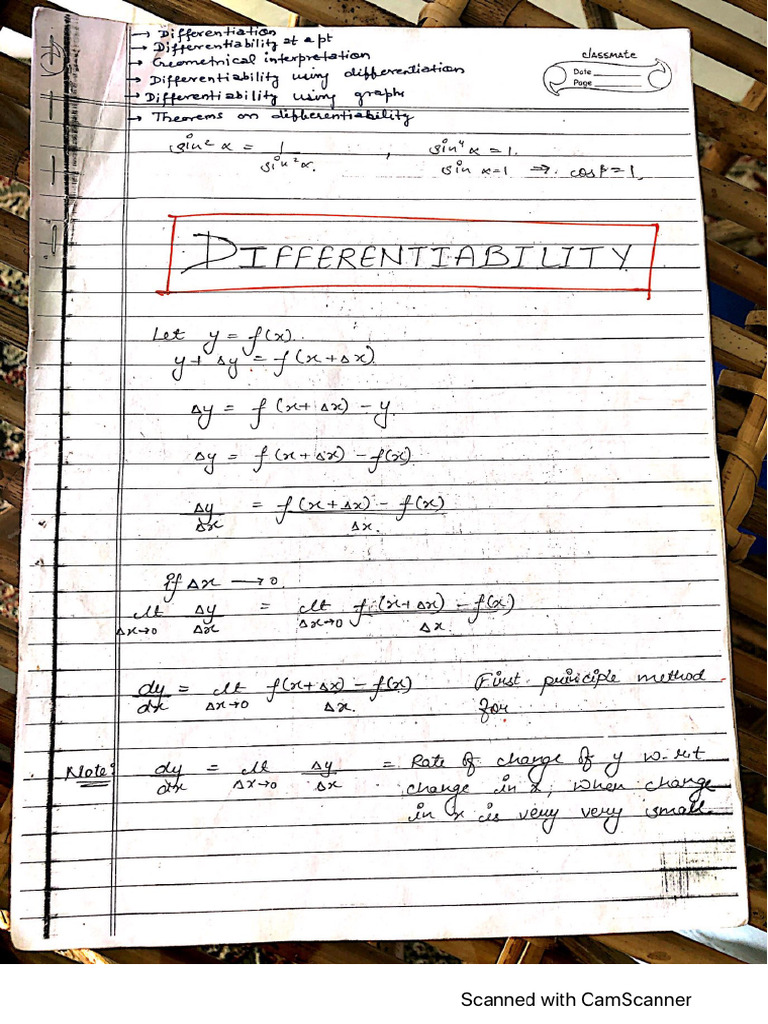 → Differentiation
→ Differentiability at a pt
→ Geometrical interpretation
→ Differentiability using differentiation
→ Differentiability using graphs
→ Theorems on differentiability
classmate
Date
Page
sin² α = 1/sin² α. , sin⁴ α = 1.
sin α = 1 ⇒ cos β = 1
DIFFERENTIABILITY
Let y = f(x).
y + Δy = f(x + Δx)
Δy = f(x + Δx) - y
Δy = f(x + Δx) - f(x)
Δy/Δx = f(x + Δx) - f(x)/Δx
if Δx → 0.
lt Δx→0 Δy/Δx = lt Δx→0 f(x + Δx) - f(x)/Δx
dy/dx = lt Δx→0 f(x + Δx) - f(x)/Δx. First principle method
for
Note: dy/dx = lt Δx→0 Δy/Δx = Rate of change of y w.r.t
change in x, when change
in x is very very small.
Scanned with CamScanner